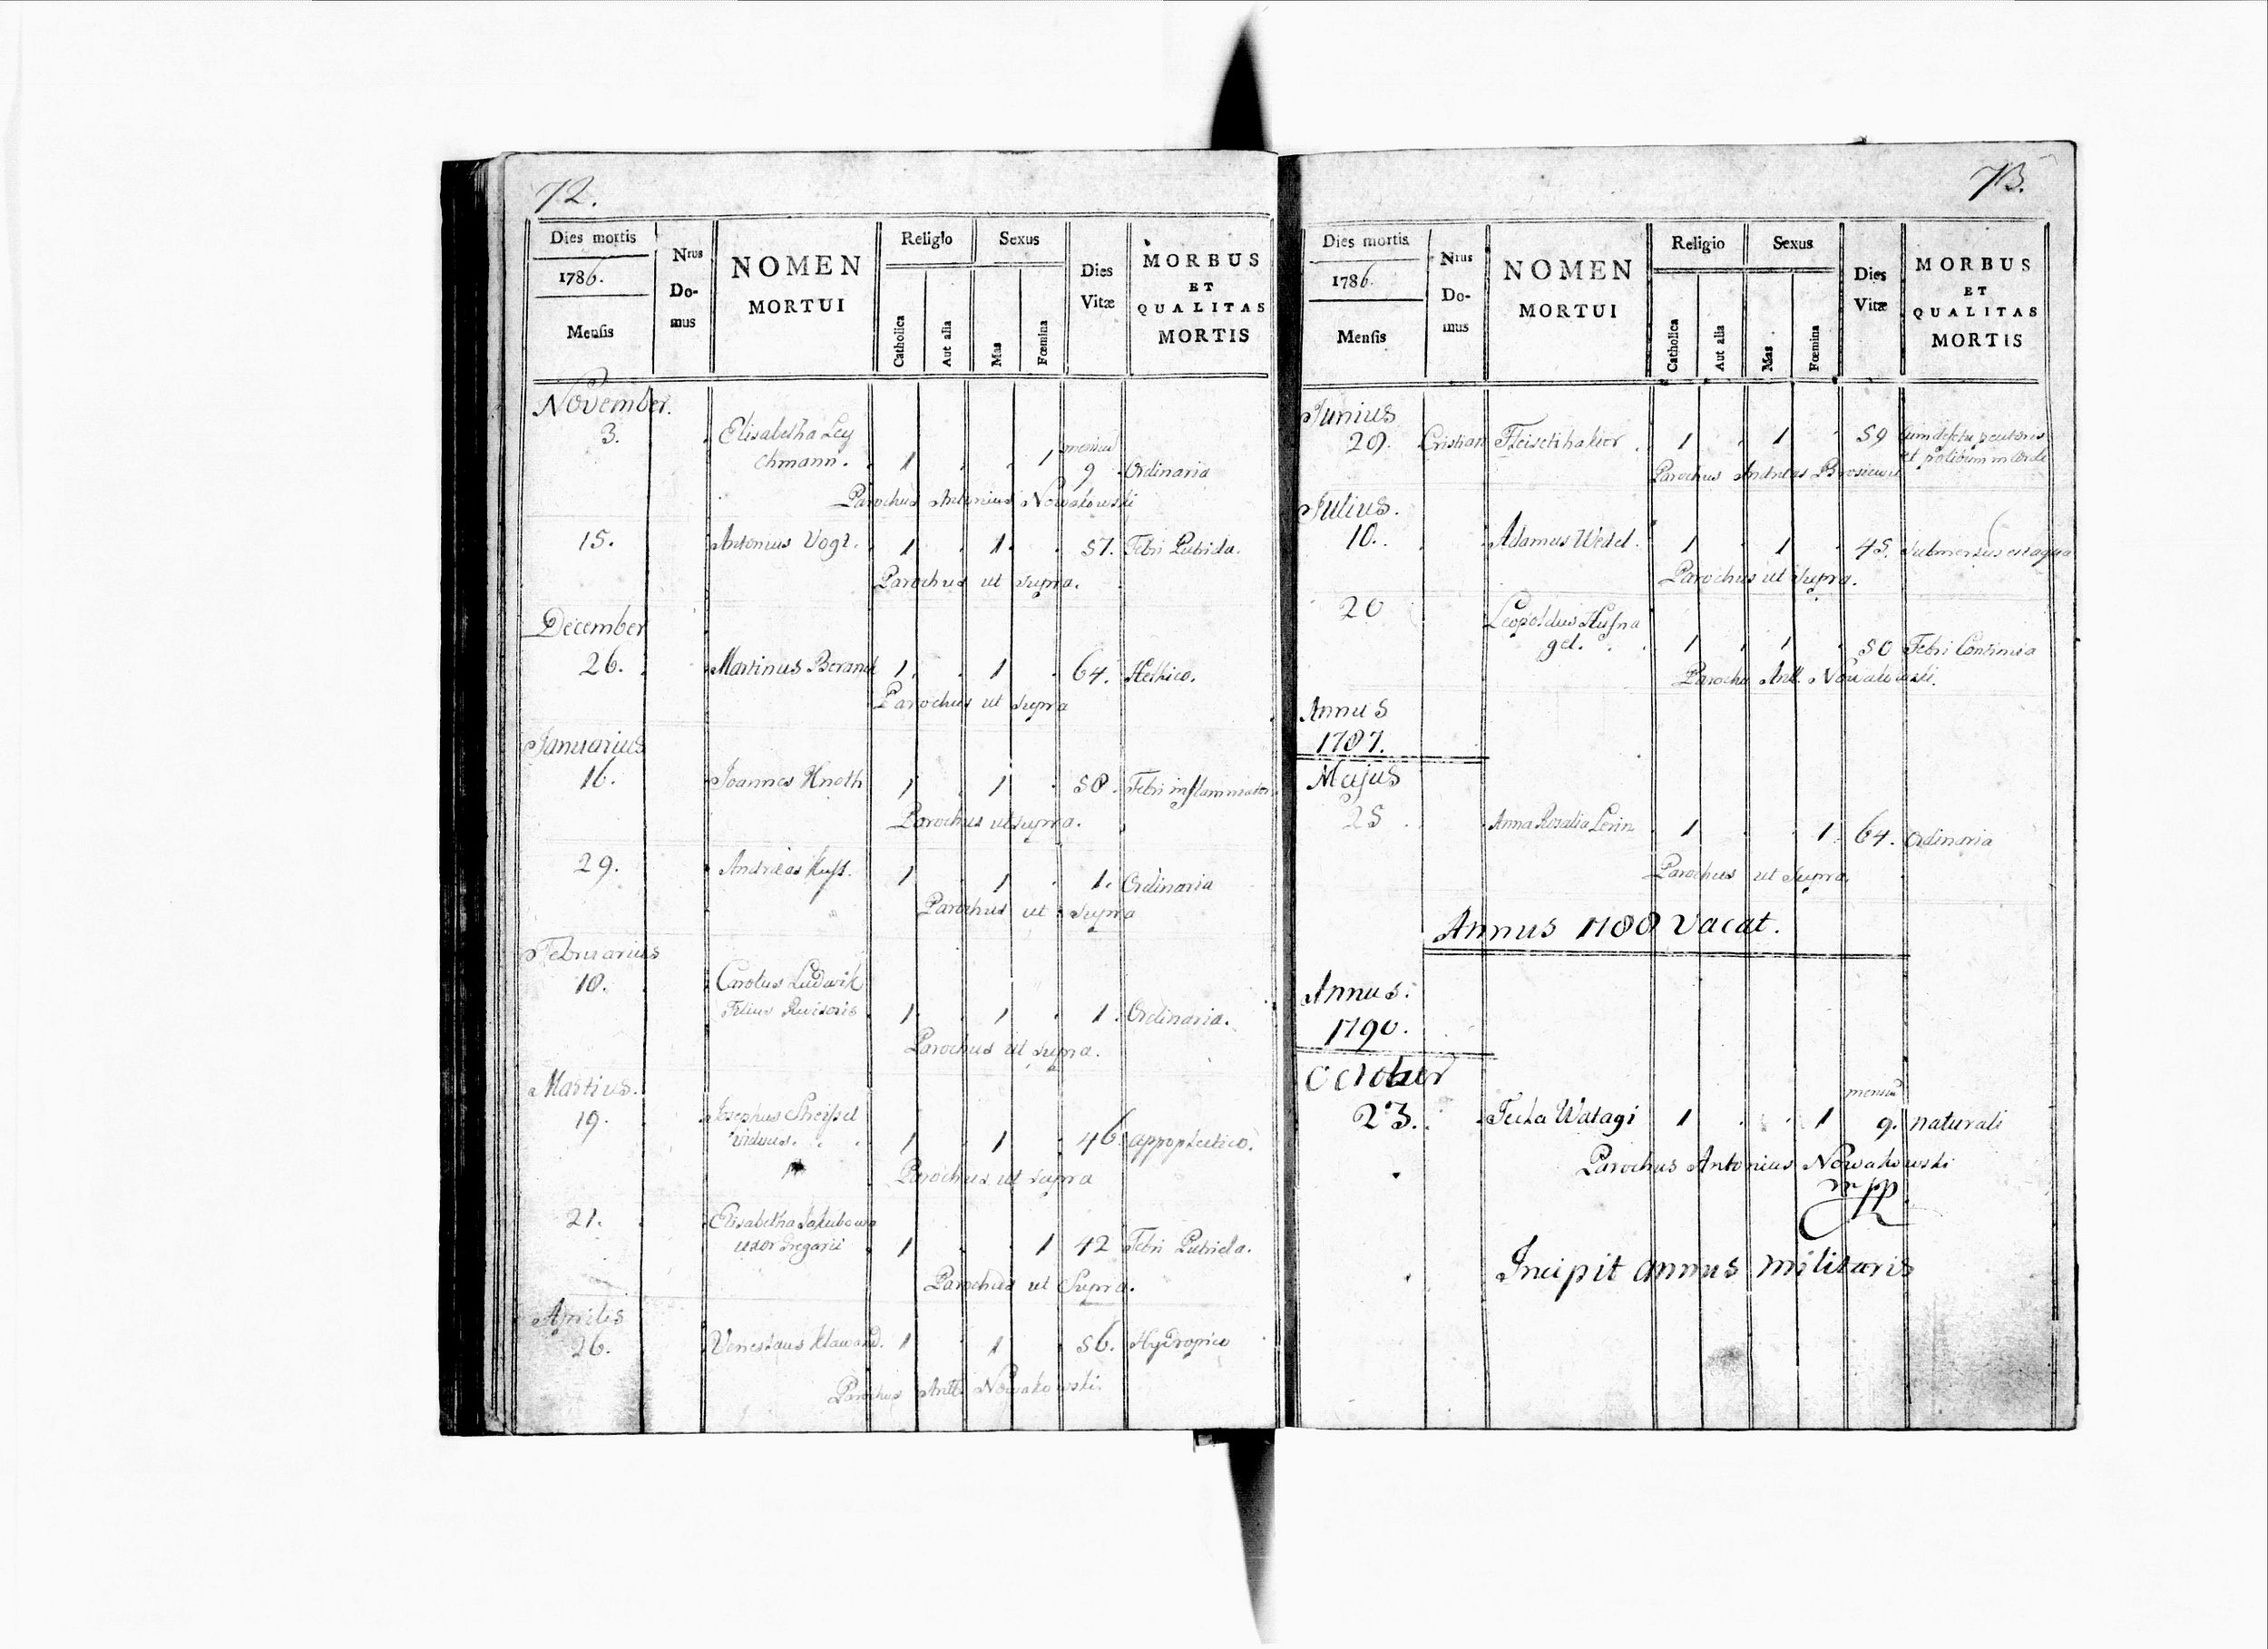 72.
Dies mortis
1786.
Mensis
Nrus
Do-
mus
NOMEN
MORTUI
Religio
Catholica
Aut alia
Sexus
Mas
Fœmina
Dies
Vitæ
MORBUS
ET
QUALITAS
MORTIS
November.
3. Elisabetha Ley
chmann. 1 . . 1 9 Ordinaria
Parochus Antonius Nowakowski
15. Antonius Vogt. 1 . 1. . 57. Febri Putrida.
Parochus ut Supra.
December
26. Martinus Berand 1. . 1 . 64. Hethico.
Parochus ut Supra
Januarius
16. Joannes Knoth 1 . 1 . 58. Febri inflammator
Parochus ut Supra.
29. Andreas 1 . 1 . 1. Ordinaria
Parochus ut Supra
Februarius
18. Carolus Ludwik
Filius Revisoris 1 . 1 . 1. Ordinaria.
Parochus ut Supra.
Martius.
19. Josephus
Viduus. 1 . 1 . 46. appoplectico.
Parochus ut Supra
21. Elisabetha Jakubowa
uxor Gregorii 1 . . 1 42 Febri Putrida.
Parochus ut Supra.
Aprilis
26. 1 . 1 . 56. Hydropico
Parochus Antt. Nowakowski.
73.
Dies mortis
1786.
Mensis
Nrus
Do-
mus
NOMEN
MORTUI
Religio
Catholica
Aut alia
Sexus
Mas
Fœmina
Dies
Vitæ
MORBUS
ET
QUALITAS
MORTIS
Junius
29. Cristian 1 . 1 . 59
Parochus Andreas
Julius.
10. Adamus Wedel. 1 . 1 . 45. Submersus est aqua
Parochus ut Supra.
20 Leopoldus Hufna
gel. 1 . 1 . 50 Febri Continua
Parochs Antt. Nowakowski.
Annus
1787.
Majus
25 Anna Rosalia Lerin 1 . . 1. 64. Ordinaria
Parochus ut Supra.
Annus 1788 Vacat.
Annus.
1790.
October
23. Tecla Watagi 1 . . 1 9. naturali
Parochus Antonius Nowakowski
mpp
Incipit annus militaris